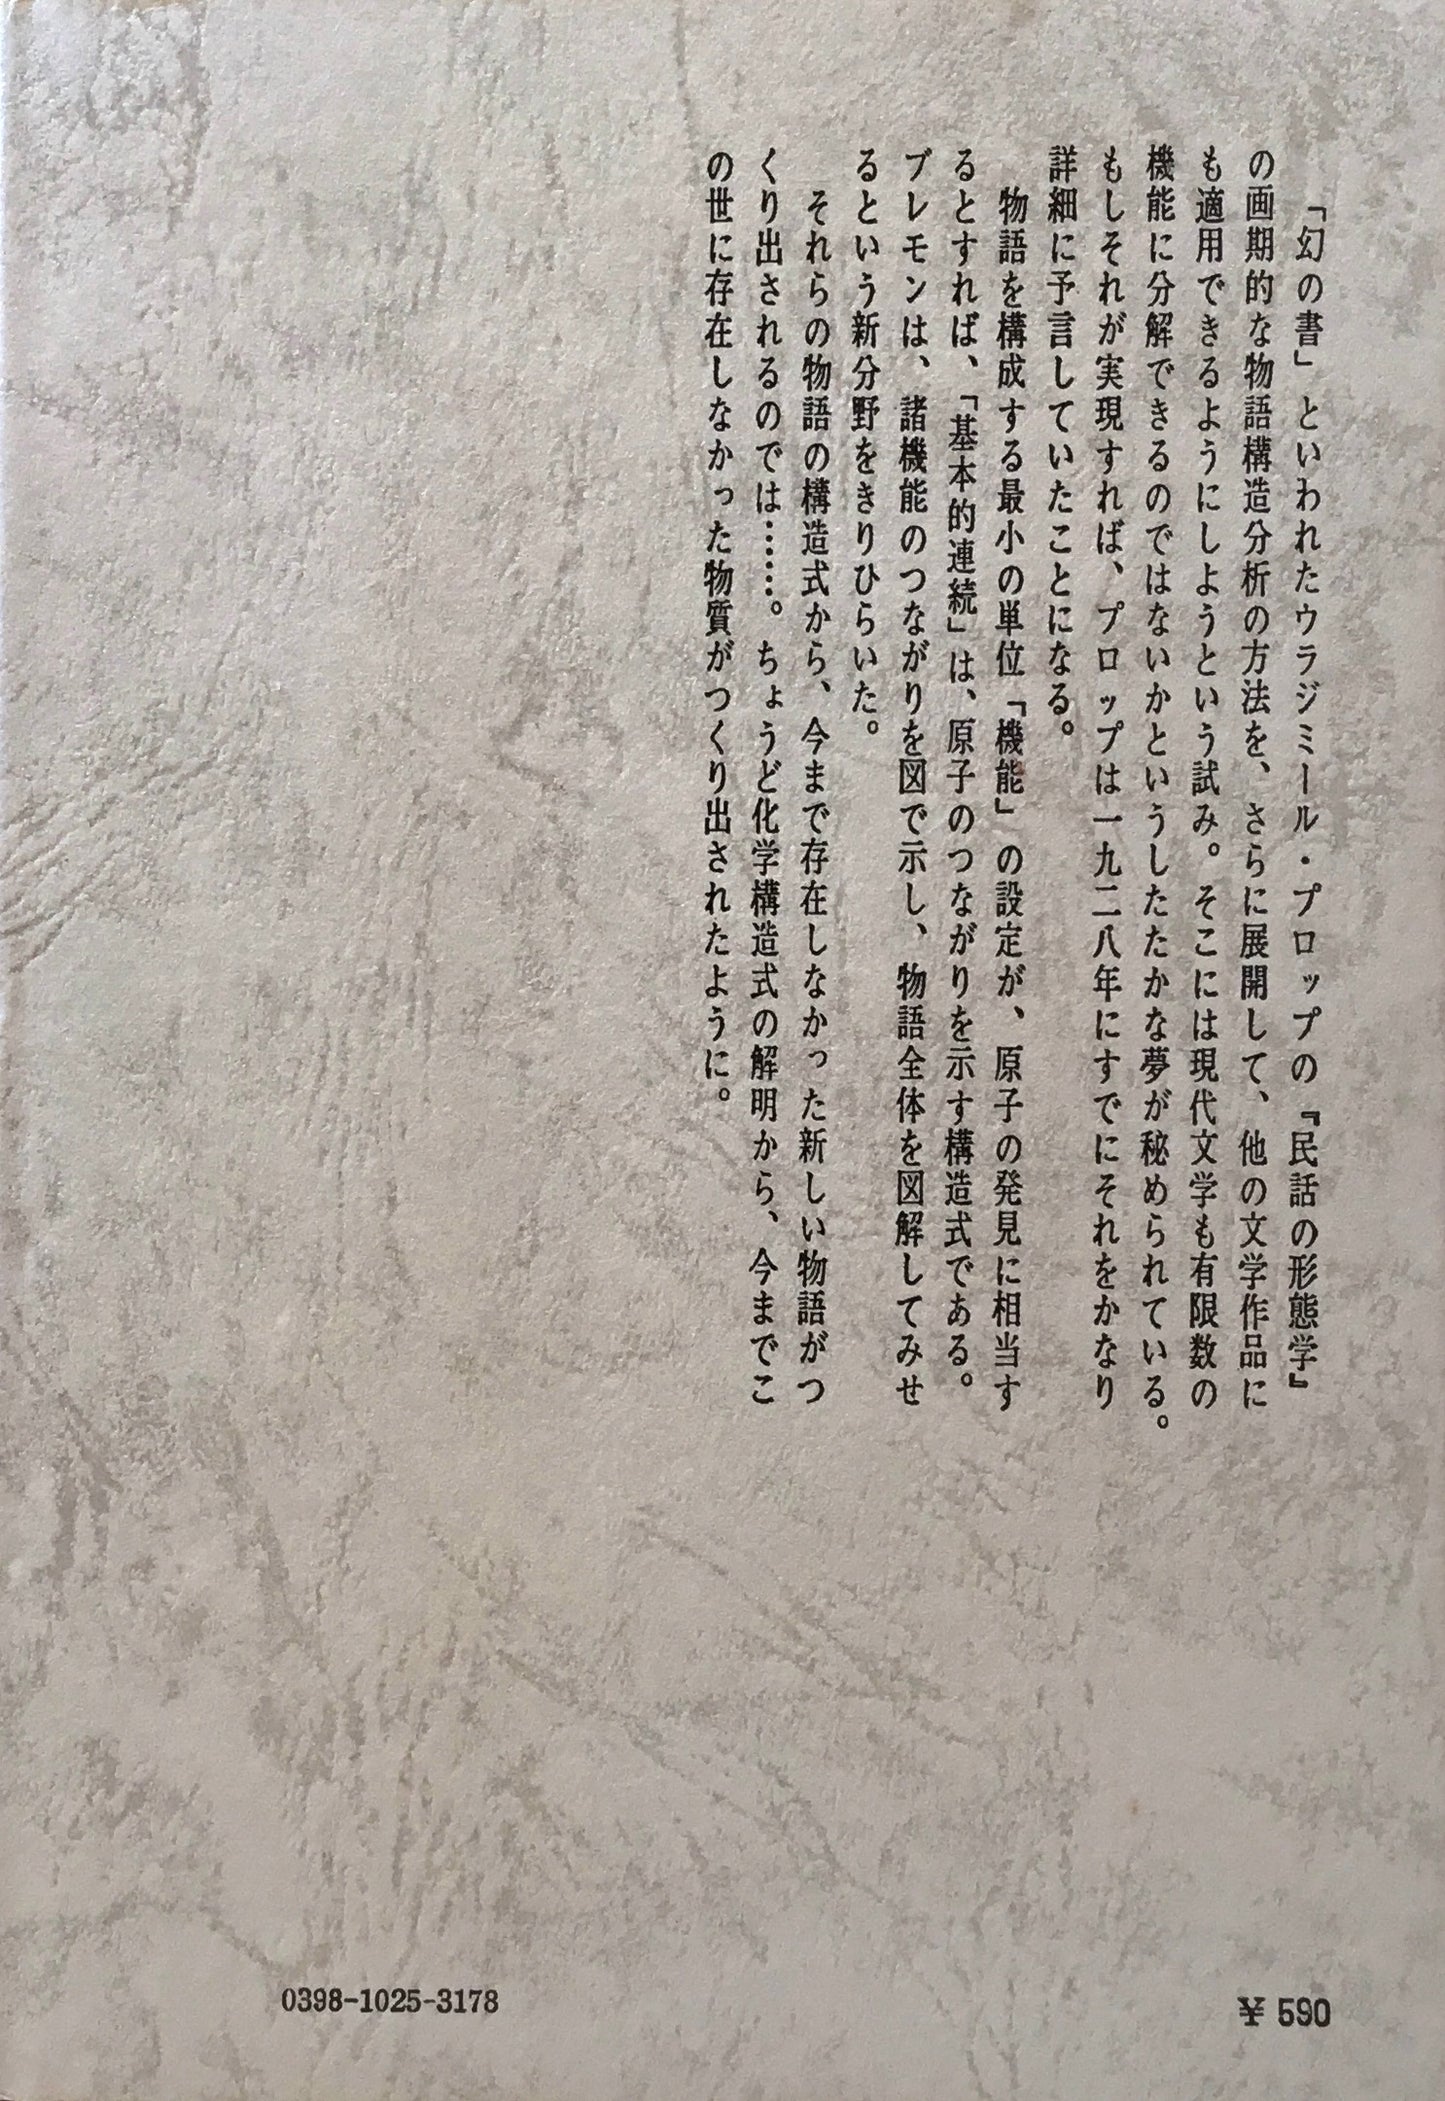 「幻の書」といわれたウラジミール・プロップの『民話の形態学』
の画期的な物語構造分析の方法を、さらに展開して、他の文学作品に
も適用できるようにしようという試み。そこには現代文学も有限数の
機能に分解できるのではないかというしたたかな夢が秘められている。
もしそれが実現すれば、プロップは一九二八年にすでにそれをかなり
詳細に予言していたことになる。
物語を構成する最小の単位「機能」の設定が、原子の発見に相当す
るとすれば、「基本的連続」は、原子のつながりを示す構造式である。
ブレモンは、諸機能のつながりを図で示し、物語全体を図解してみせ
るという新分野をきりひらいた。
それらの物語の構造式から、今まで存在しなかった新しい物語がつ
くり出されるのでは……。ちょうど化学構造式の解明から、今までこ
の世に存在しなかった物質がつくり出されたように。
0398-1025-3178
¥590